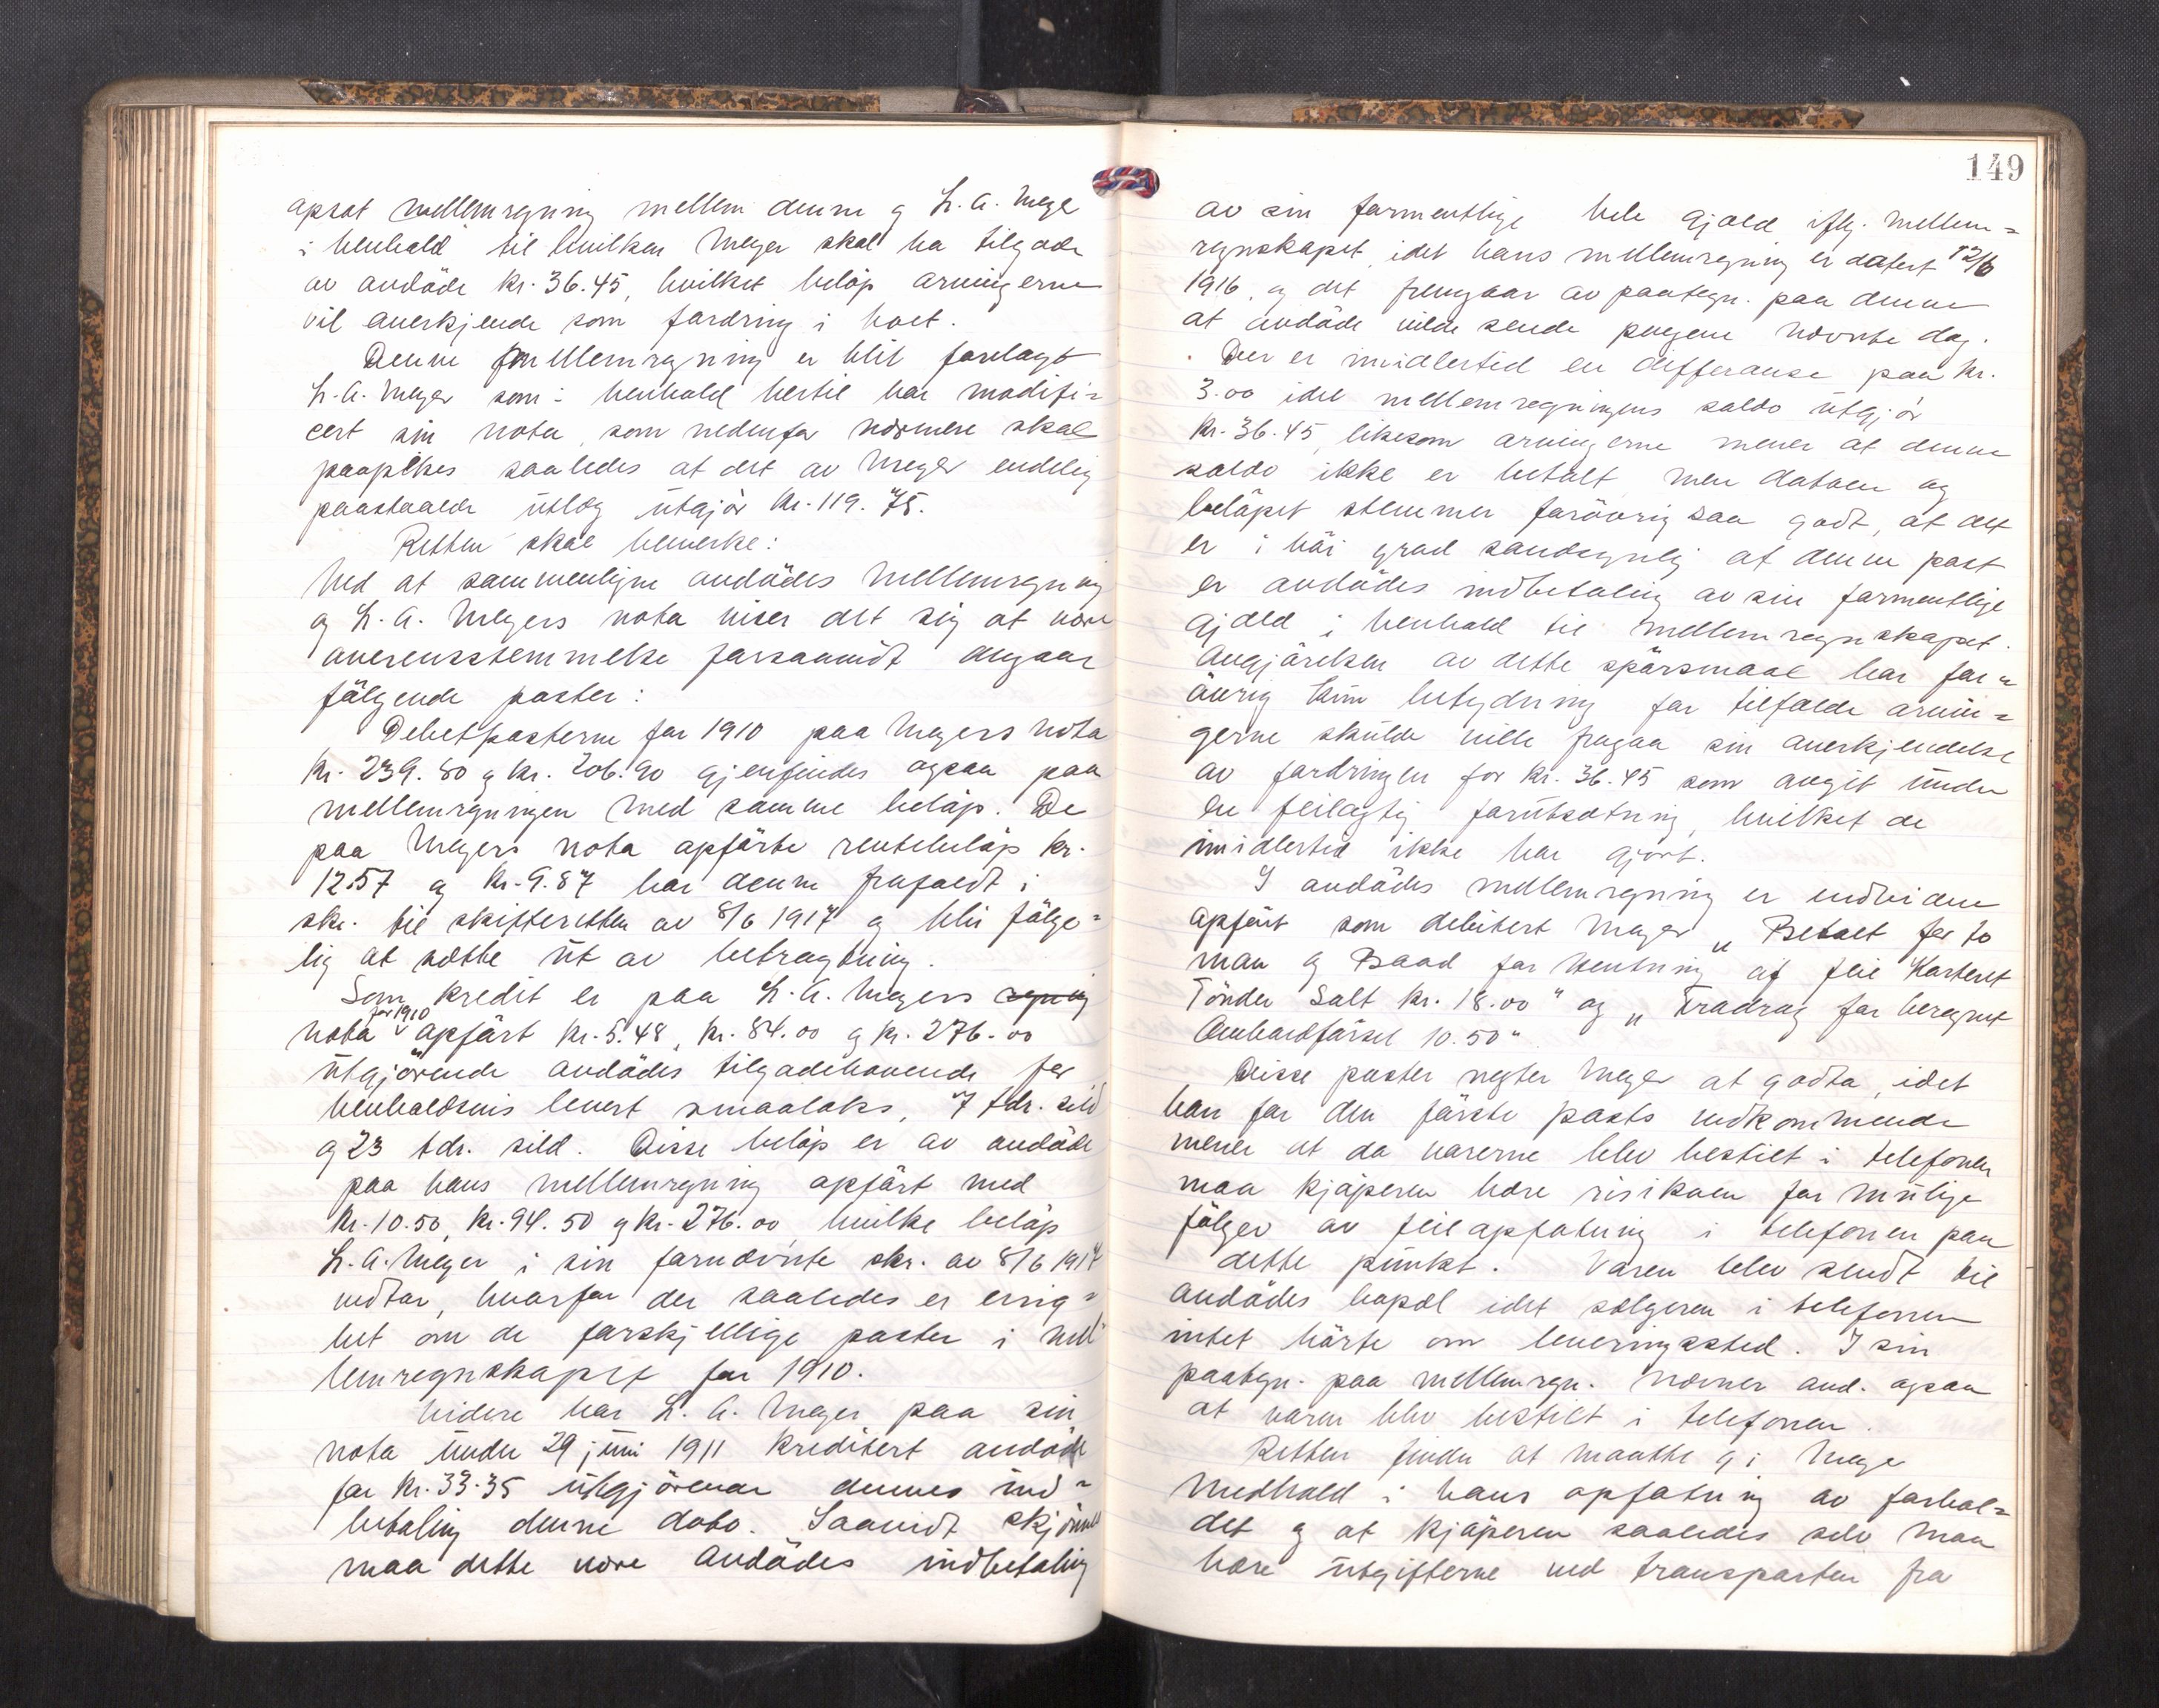 opsat mellemregning mellem denne og L. A. Meyer
i henhold til hvilken Meyer skal ha tilgode
av avdöde kr. 36.45, hvilket belöp arvingerne
vil anerkjende som fordring i boet.
Denne mellemregning er blit forelagt
L. A. Meyer som i henhold hertil har modifi=
cert sin nota, som nedenfor nærmere skal
paapekes saaledes at det av Meyer endelig
paastaaede utlæg utgjör kr. 119.75.
Retten skal bemerke:
Ved at sammenligne avdödes mellemregning
og L. A. Meyers nota viser det sig at være
overensstemmelse forsaavidt angaar
fölgende poster:
Debetposterne for 1910 paa Meyers nota
kr. 239.80 og kr. 206.90 gjenfindes ogsaa paa
mellemregningen med samme belöp. De
paa Meyers nota opförte rentebelöp kr.
12.57 og kr. 9.87 har denne frafaldt i
skr. til skifteretten av 8/6 1917 og blir fölge=
lig at sætte ut av betragtning.
Som kredit er paa L. A. Meyers regning
nota for 1910 opfört kr. 5.48, kr. 84.00 og kr. 276.00
utgjörende avdödes tilgodehavende for
henholdsvis levert smaalaks, 7 tdr. sild
og 23 tdr. sild. Disse belöp er av avdöde
paa hans mellemregning opfört med
kr. 10.50, kr. 94.50 og kr. 276.00 hvilke belöp
L. A. Meyer i sin fornævnte skr. av 8/6 1917
vedtar, hvorfor der saaledes er enig=
het om de forskjellige poster i mel
lemregnskapet for 1910.
Videre har L. A. Meyer paa sin
nota under 29 juni 1911 kreditert avdöde
for kr. 33.35 utgjörende dennes ind=
betaling denne dato. Saavidt skjönnes
maa dette være avdödes indbetaling
149
av sin formentlige hele gjæld iflg. mellem=
regnskapet, idet hans mellemregning er datert 12/6
1916, og det fremgaar av paategn. paa denne
at avdöde vilde sende pengene nævnte dag.
Der er imidlertid en differanse paa kr.
3.00 idet mellemregningens saldo utgjör
kr. 36.45, likesom arvingerne mener at denne
saldo ikke er betalt, men datoen og
belöpet stemmer forövrig saa godt, at det
er i höi grad sandsynlig at denne post
er avdödes indbetaling av sin formentlige
gjæld i henhold til mellemregnskapet.
Avgjörelsen av dette spörsmaal har for=
övrig kun betydning for tilfælde arvin=
gerne skulde ville fragaa sin anerkjendelse
av fordringen for kr. 36.45 som avgit under
en feilagtig forutsætning, hvilket de
imidlertid ikke har gjort.
I avdödes mellemregning er endvidere
opfört som debitert Meyer „Betalt for to
man og Baad for Hentning af feil Karteret
Tönder Salt kr. 18.00" og „Fradrag for beregnet
Ombordförsel 10.50"
Disse poster negter Meyer at godta, idet
han for den förste posts vedkommende
mener at da varerne blev bestilt i telefonen
maa kjöperen bære risikoen for mulige
fölger av feilopfatning i telefonen paa
dette punkt. Varen blev sendt til
avdödes bopæl idet sælgeren i telefonen
intet hörte om leveringssted. I sin
paategn. paa mellemregn. nævner avd. ogsaa
at varen blev bestilt i telefonen.
Retten finder at maatte gi Meyer
medhold i hans opfatning av forhol=
det og at kjöperen saaledes selv maa
bære utgifterne ved transporten fra